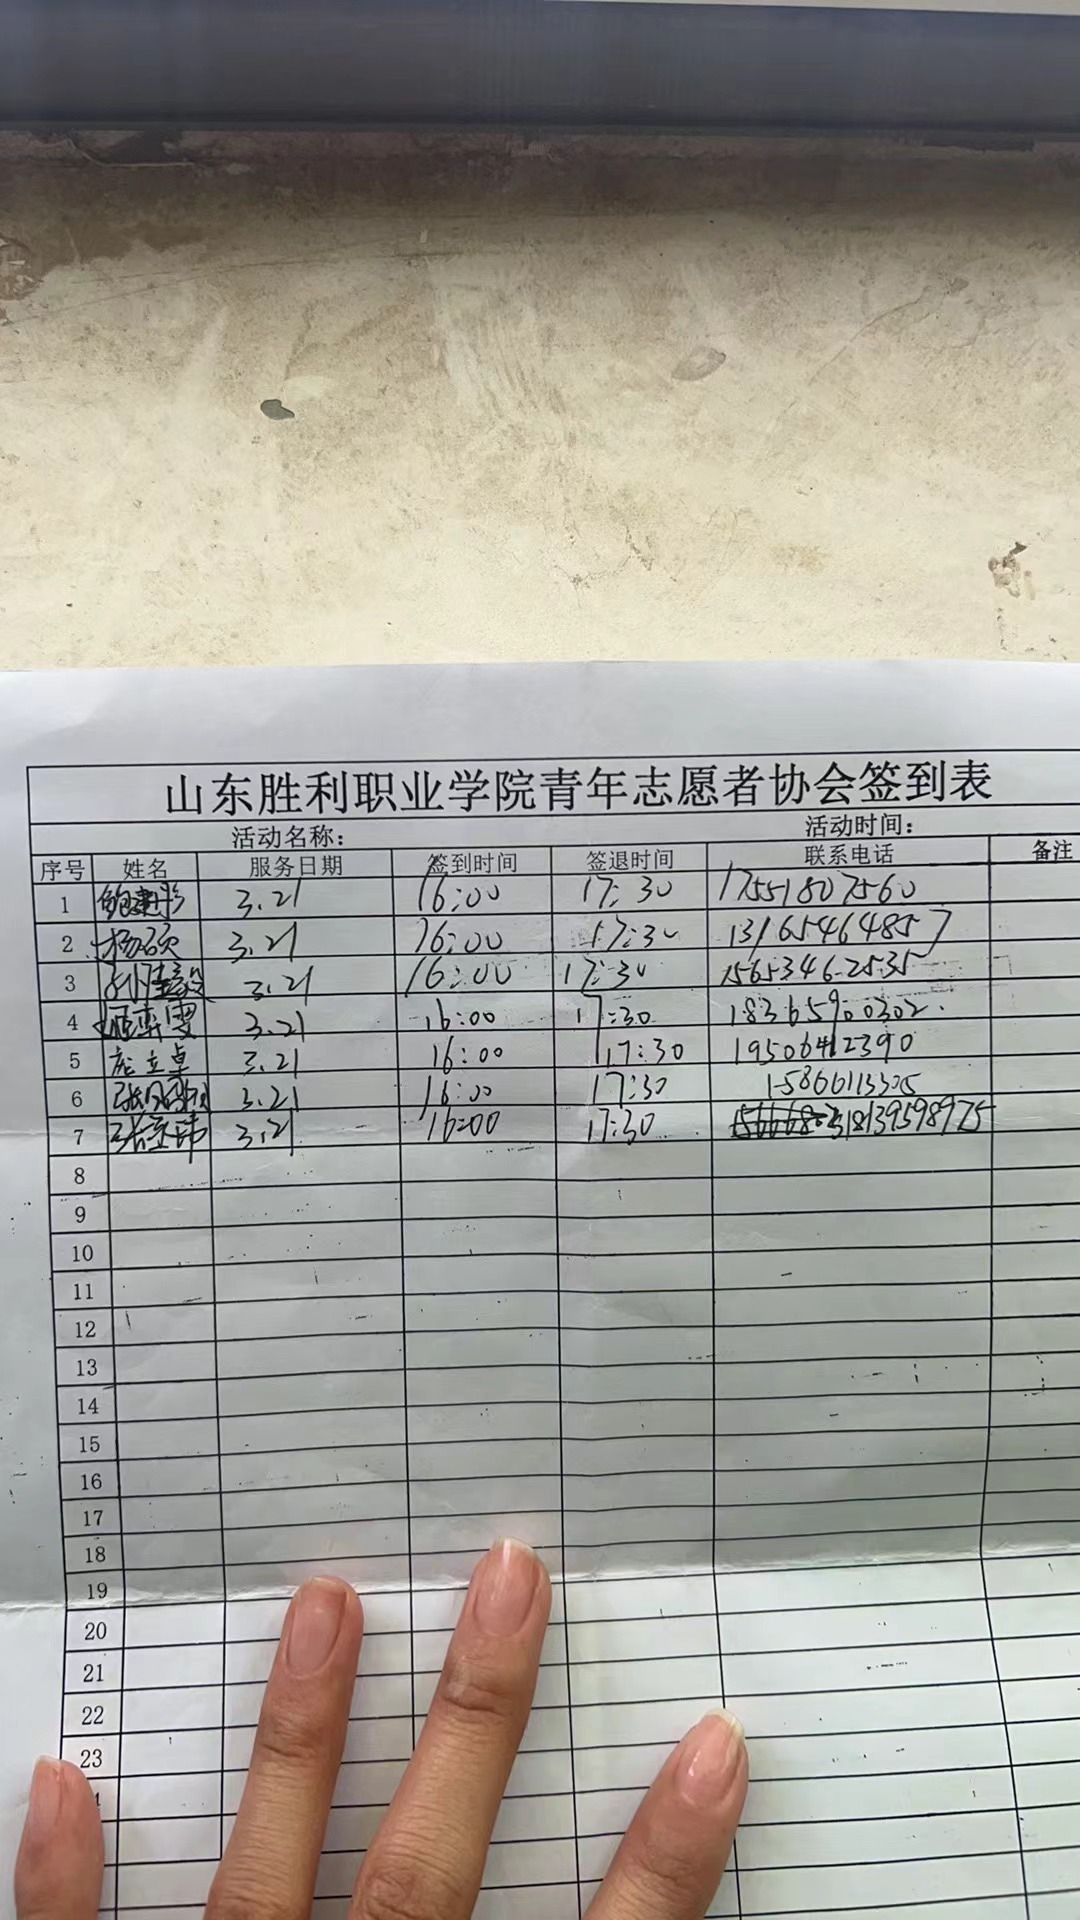 山东胜利职业学院青年志愿者协会签到表
活动名称： 活动时间：
序号 姓名 服务日期 签到时间 签退时间 联系电话 备注
1 3.21 16:00 17:30 17551807560
2 杨硕 3.21 16:00 17:30 13165464857
3 3.21 16:00 17:30 15653462535
4 3.21 16:00 17:30 18365900302.
5 庞立卓 3.21 16:00 17:30 19506412390
6 3.21 16:00 17:30 15866113305
7 3.21 16:00 17:30 18139598975
8
9
10
11
12
13
14
15
16
17
18
19
20
21
22
23